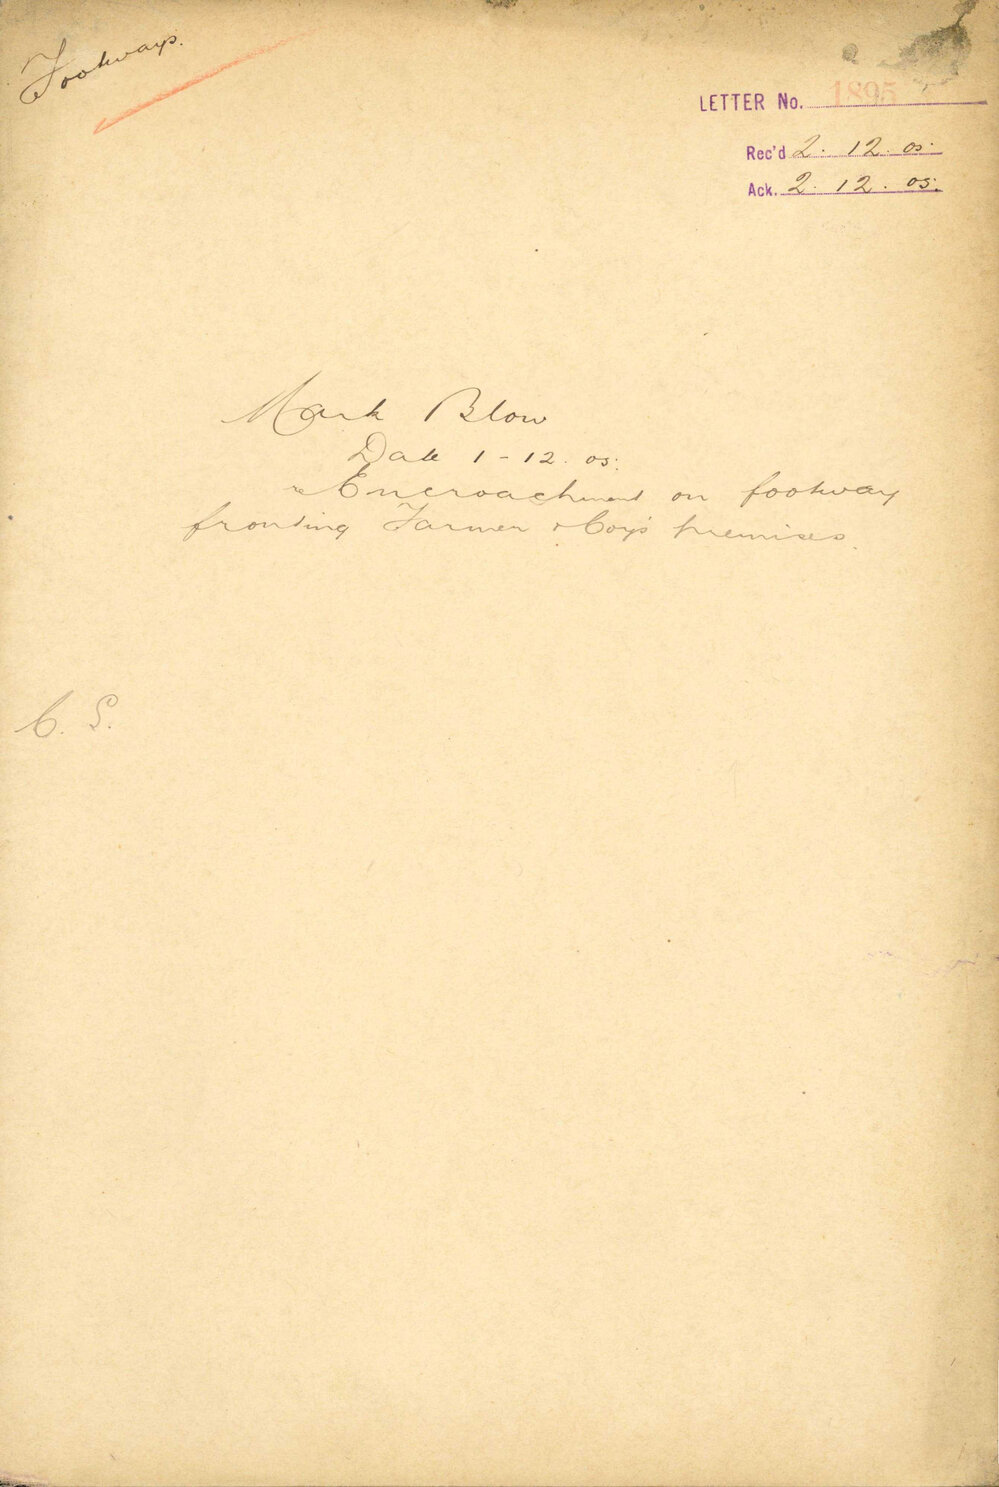 Footways.
LETTER No. 1895
Rec'd 2. 12. 05.
Ack. 2. 12. 05.
Mark Blow
Date 1-12.05.
re Encroachment on footway
fronting Farmer & Coy's premises.
C. S.